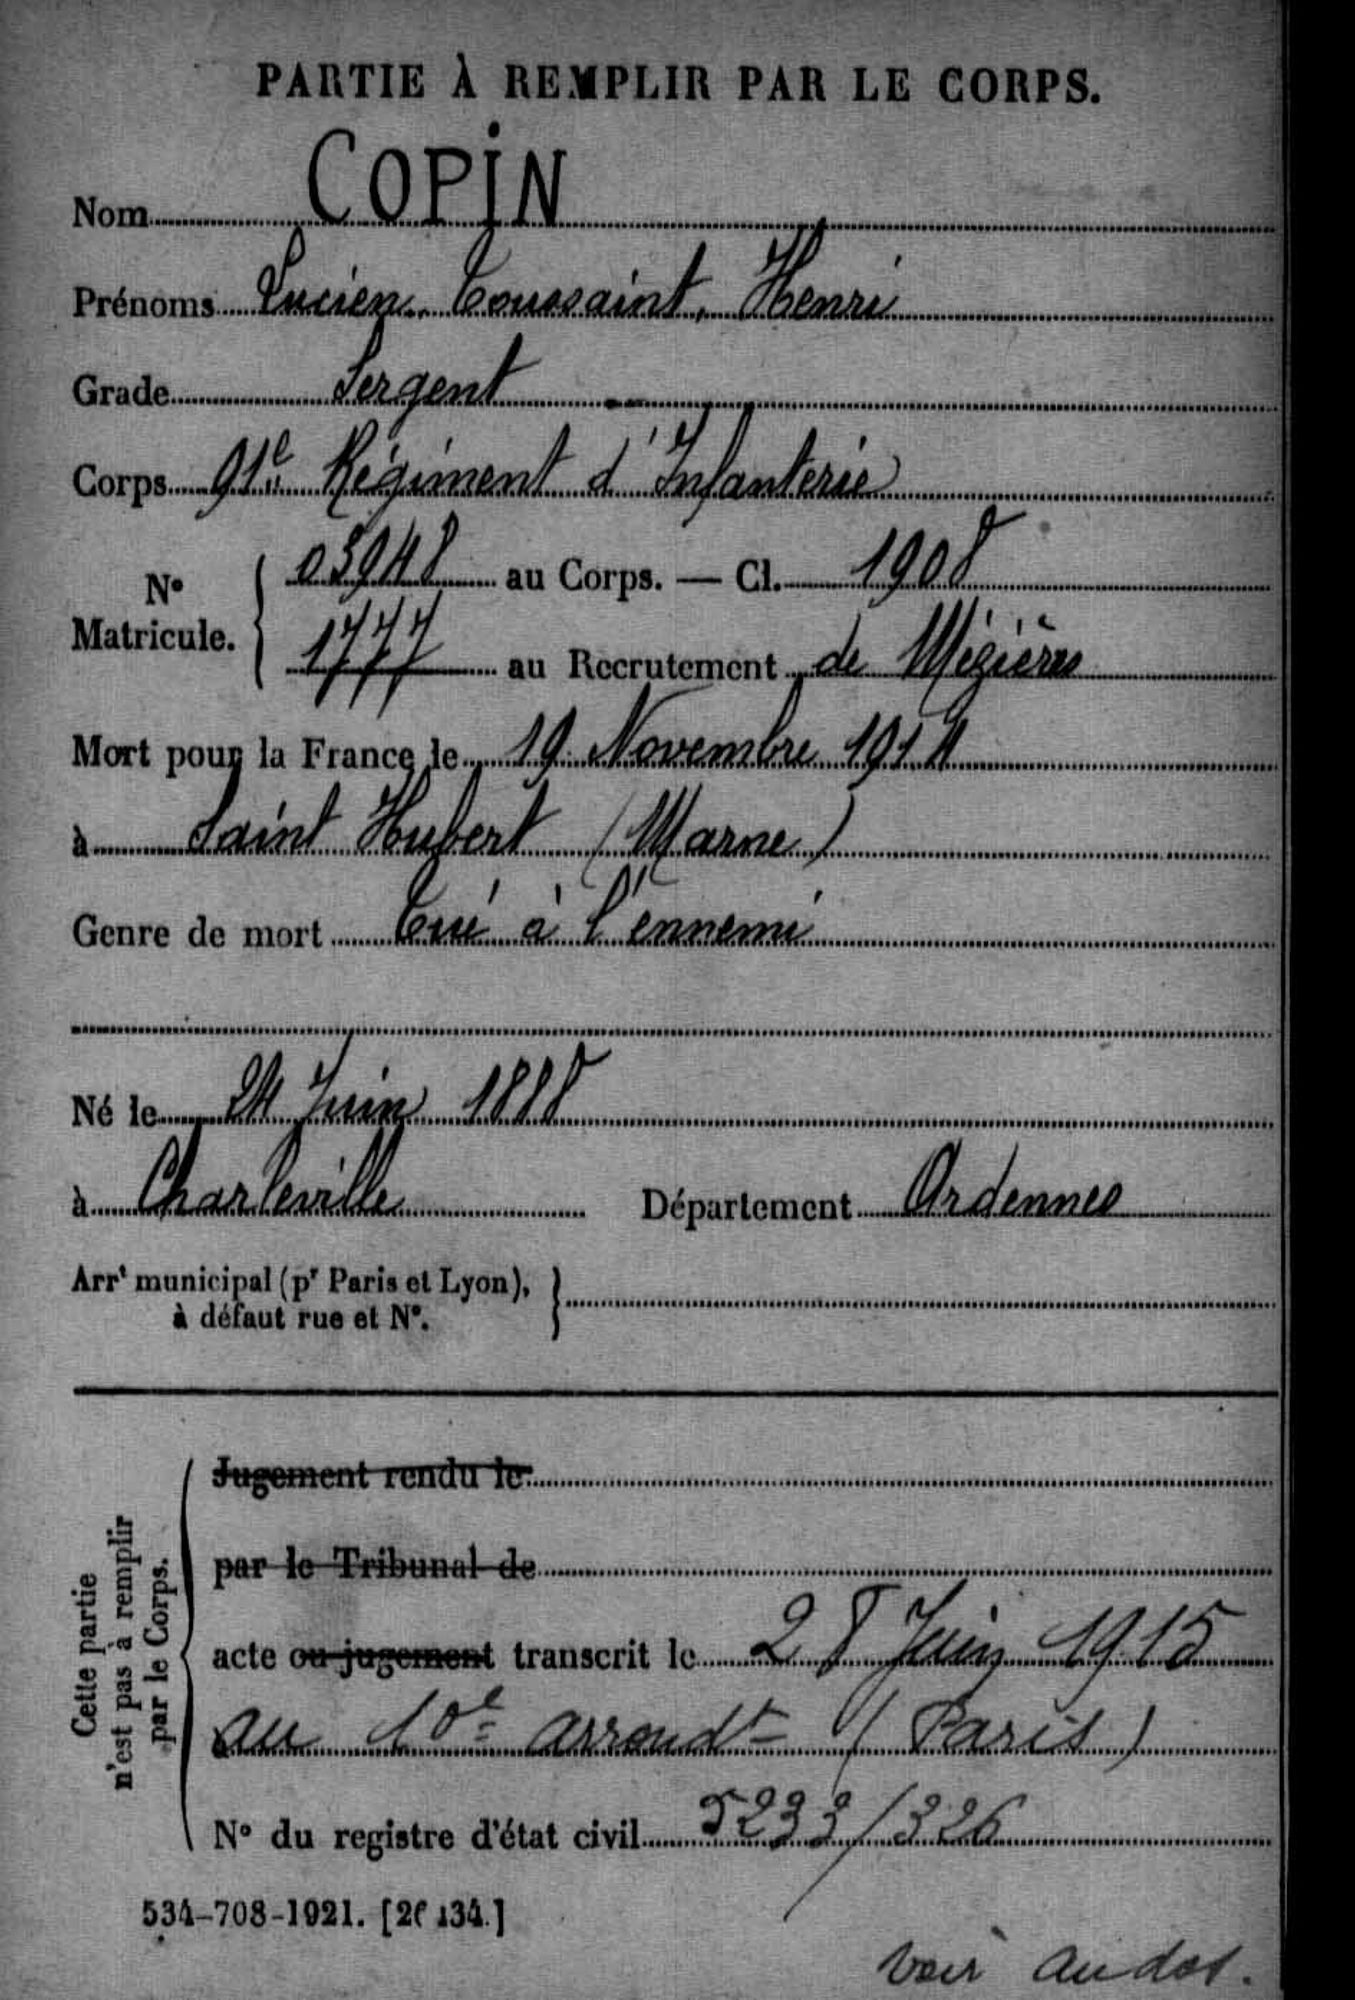 PARTIE À REMPLIR PAR LE CORPS.
Nom COPIN
Prénoms Lucien, Toussaint, Henri
Grade Sergent
Corps 91e Régiment d'Infanterie
N° Matricule. { 03948 au Corps. — Cl. 1908
1777 au Recrutement de Mézières
Mort pour la France le 19 Novembre 1914
à Saint Hubert (Marne)
Genre de mort Tué à l'ennemi
Né le 24 Juin 1888
à Charleville Département Ordennes
Arrt municipal (pr Paris et Lyon),
à défaut rue et N°.
Cette partie
n'est pas à remplir
par le Corps.
Jugement rendu le
par le Tribunal de
acte ou jugement transcrit le 28 Juin 1915
au 10e arrondt (Paris)
N° du registre d'état civil 5233/326
534-708-1921. [26134.]
Voir au dos.